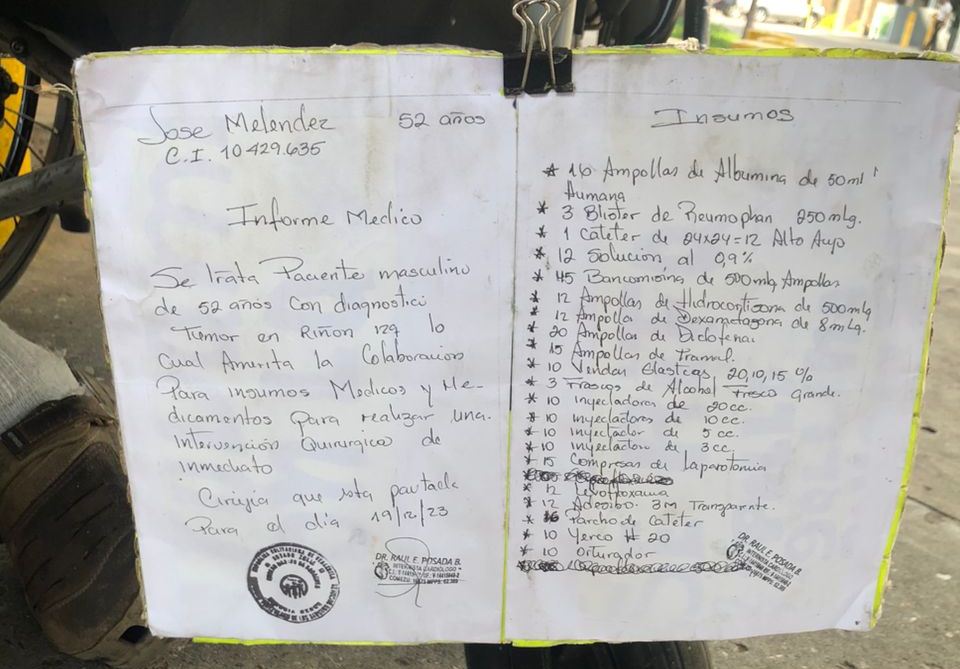 Jose Melendez 52 años
C.I. 10429.635
Informe Medico
Se trata Paciente masculino
de 52 años Con diagnostico
Tumor en Riñon izq lo
Cual Amerita la Colaboracion
Para insumos Medicos y Me-
dicamentos para realizar una
Intervención Quirurgica de
inmediato
Cirujia que esta pautada
Para el dia 19/12/23
DR. RAUL E. POSADA B.
Insumos
* 16 Ampollas de Albumina de 50ml
Humana
* 3 Blister de Reumophan 250 mlg.
* 1 Cateter de 24x24=12 Alto
* 12 Solución al 0,9%
* 45 de 500mlg Ampollas
* 12 Ampollas de Hidrocortizona de 500mlg
* 12 Ampolla de Dexametazona de 8mlg.
* 20 Ampollas de Diclofenac
* 15 Ampollas de Tramal.
* 10 Vendas Elasticas 20,10,15 %
* 3 Frascos de Alcohol Grande.
* 10 inyectadoras de 20cc.
* 10 inyectadoras de 10cc.
* 10 inyectador de 5cc.
* 10 inyectadora de 3cc.
* 15 Compresas de Laparotomia
* 12
* 12 3M Transparente.
* 16 Parcho de Cateter
* 10 Yerco # 20
* 10 Orturador
DR. RAUL E. POSADA B.